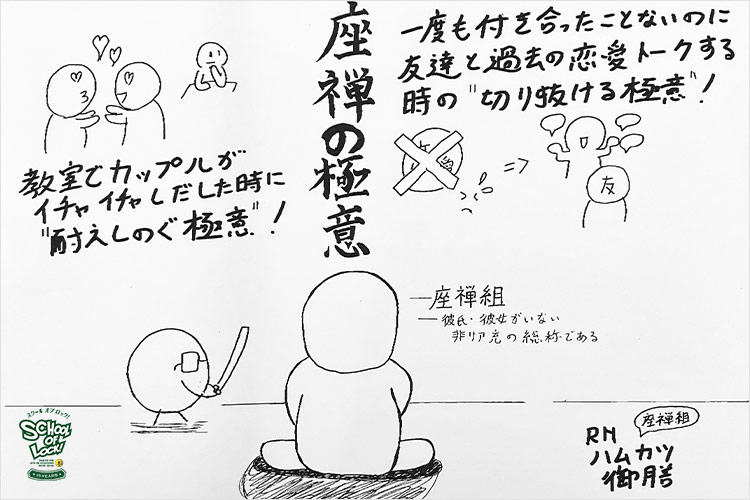 座禅の極意
一度も付き合ったことないのに
友達と過去の恋愛トークする
時の"切り抜ける極意"!
教室でカップルが
イチャイチャしだした時に
"耐えしのぐ極意"!
友
座禅組
彼氏・彼女がいない
非リア充の総称である
座禅組
RN
ハムカツ
御膳
スクールオブロック!
SCHOOL
OF
LOCK!